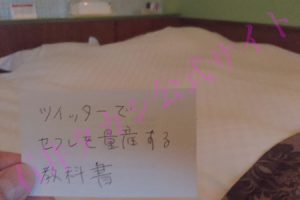 ツイッターで
セフレを量産する
教科書